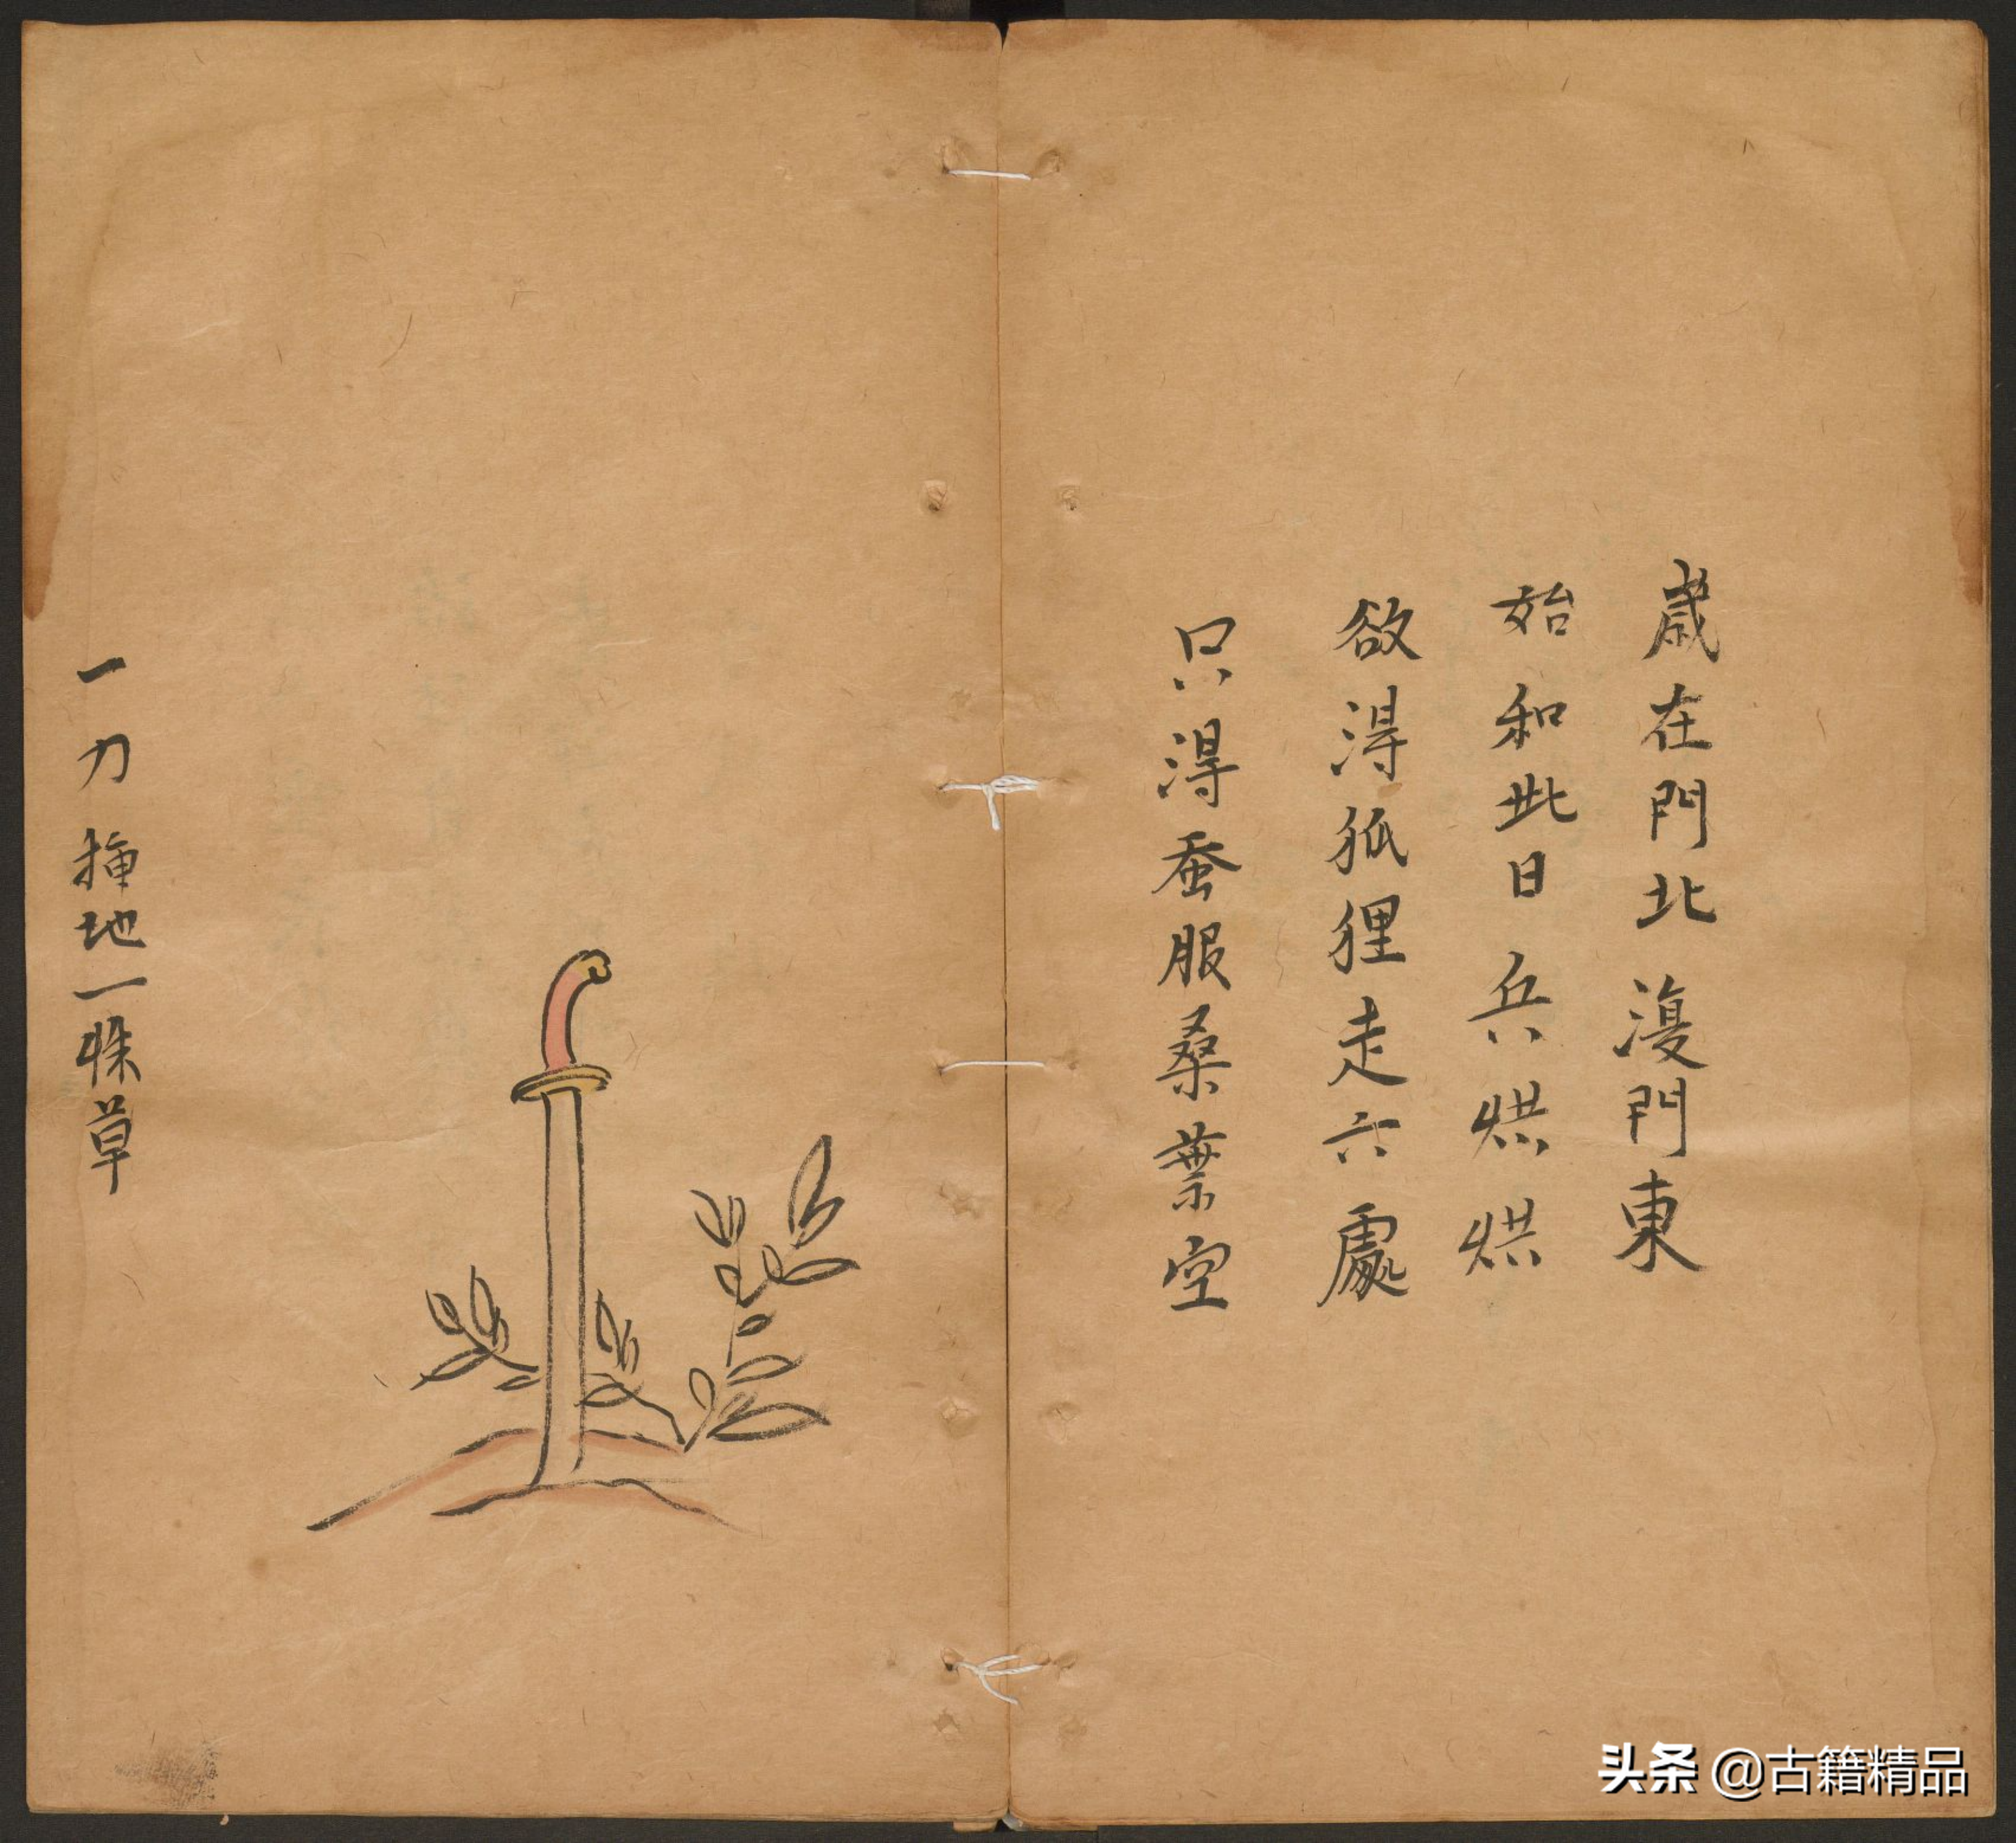 歲在門北澓門東
始和此日兵烘烘
欲淂狐狸走六處
只淂蚕服桑葉空
一刀揷地一株草
头条 @古籍精品